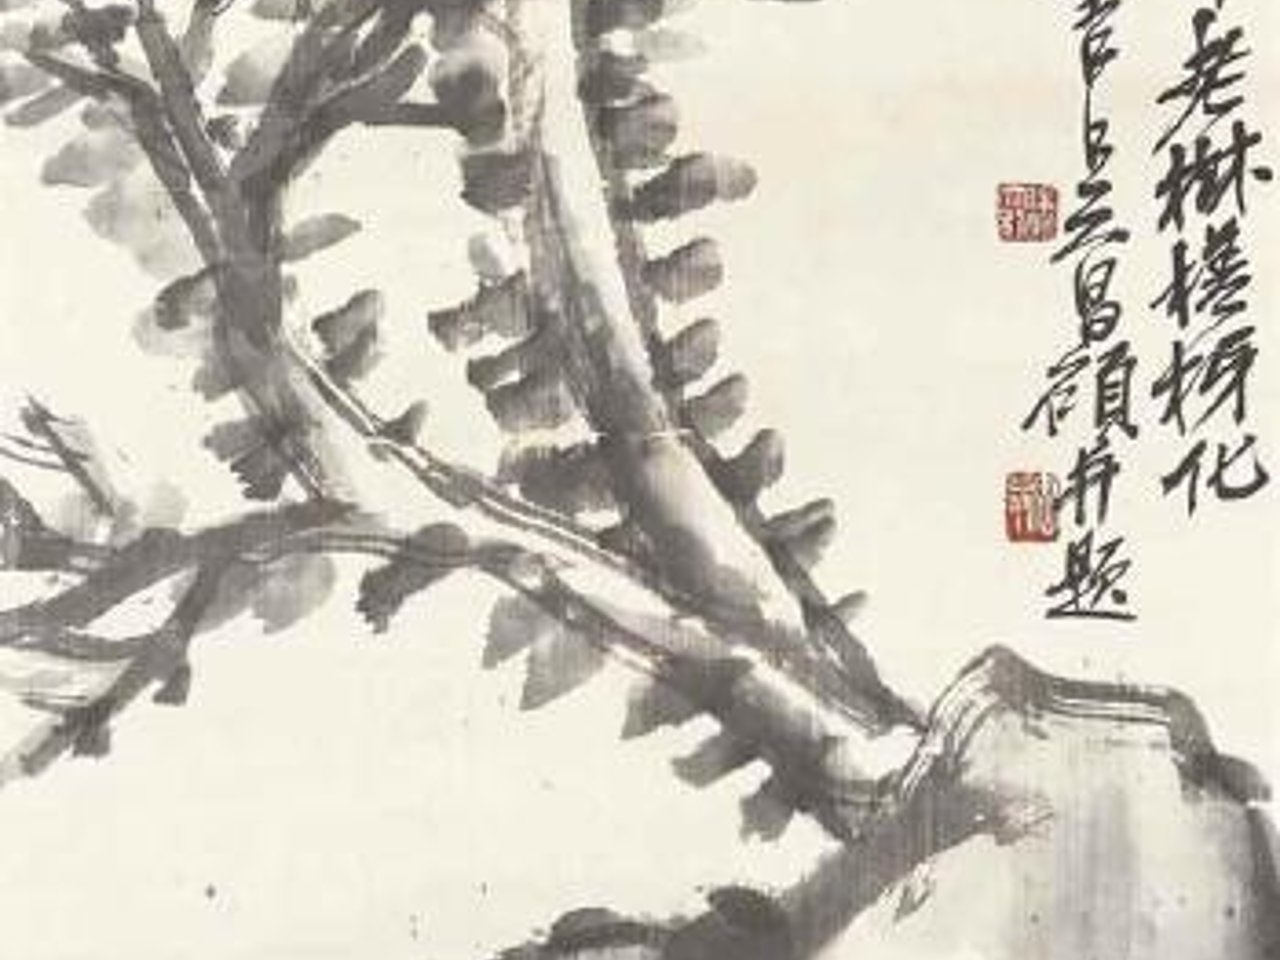 老樹槎枒化
吉吳昌碩并題